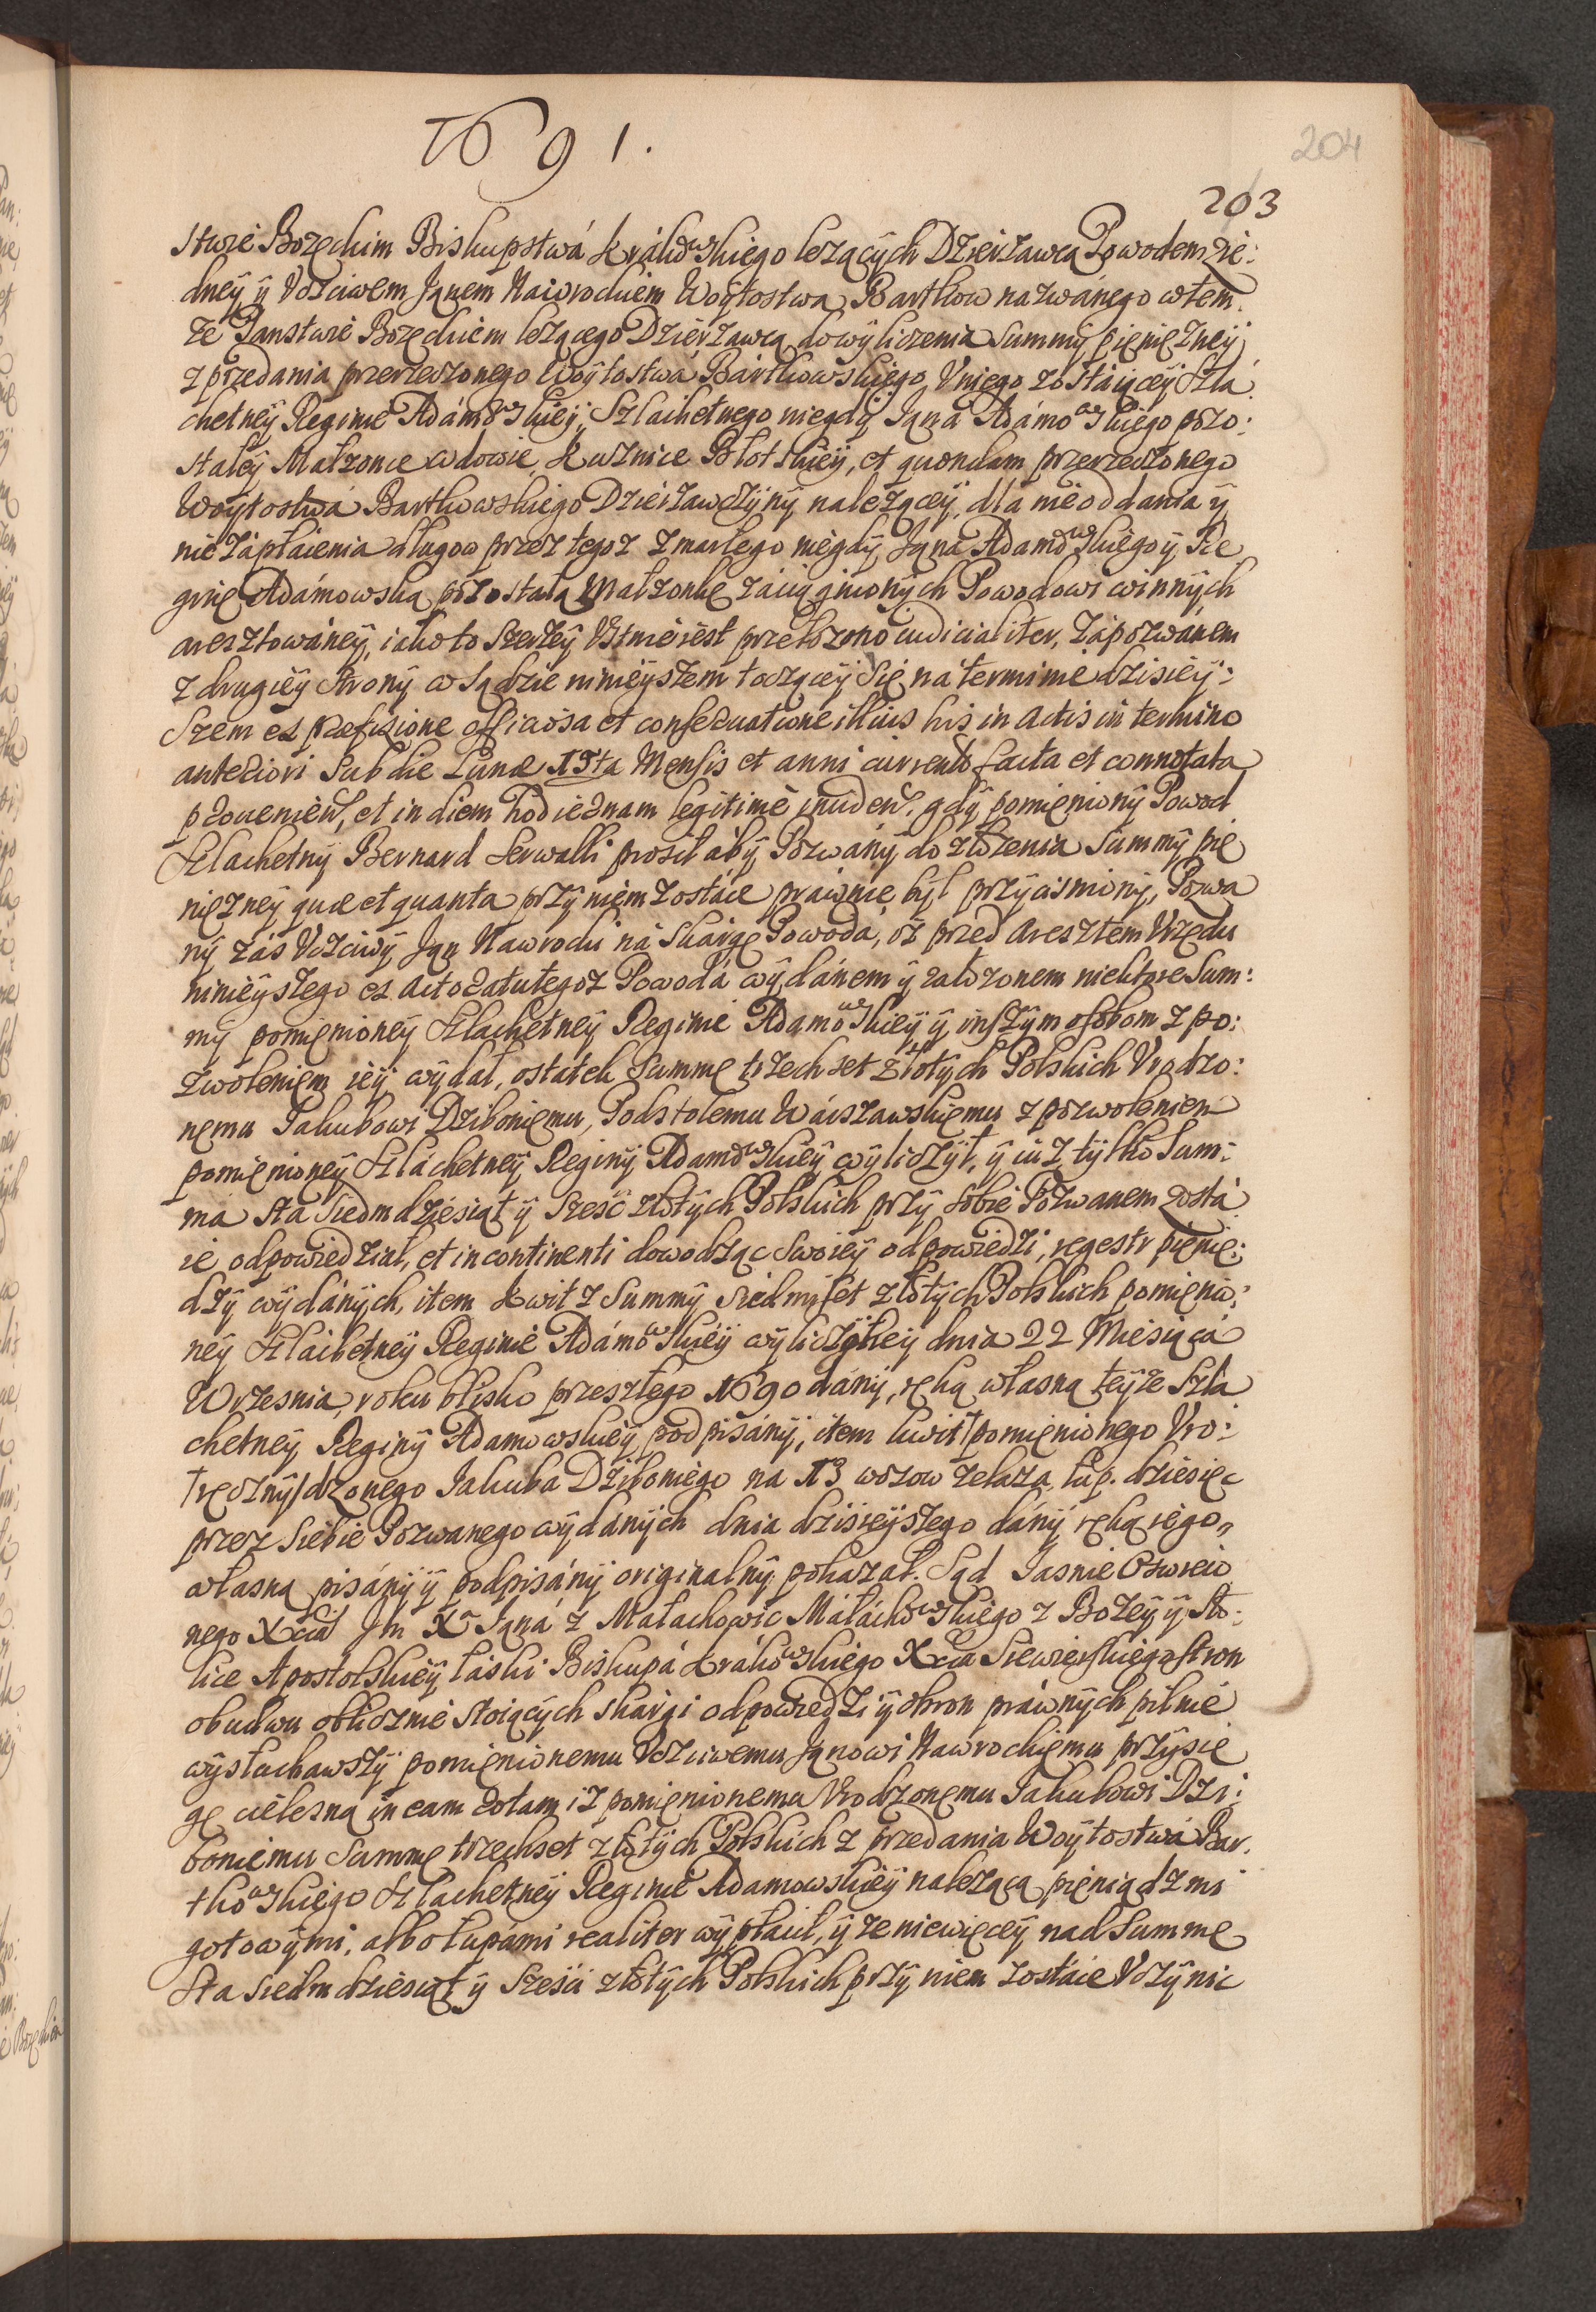 1691.
204
203
stwie Bozęckim Biskupstwá Krákowskiego leżących Dzierżawcą Powodem zie:
dney ÿ Vczciwem Janem Nawrockiem Woÿtostwa Bartkow názwánego wtem:
że Panstwie Bozęckiem leżącego Dzierżawcą do wÿliczenia Summÿ pieniężneÿ
z przedania przerzeczonego Woÿtostwá Bártkowskiego, Vniego zostáiąceÿ Szlá
chetneÿ Reginie Adámowskieÿ, Szlachetnego niegdÿ Janá Adámowskiego pozo:
stałeÿ Małzonce wdowie, Kuznice Błotskieÿ, et quondam przerzeczonego
Woÿtostwá Bartkowskiego Dzierzawczÿnÿ należąceÿ, dla nieoddania ÿ
nie zápłacenia długow przez tegoż zmarłego niegdÿ Janá Adamowskiego ÿ Re
ginę Adámowską pozostałą Małzonkę záciągnionÿch Powodowi winnÿch
aresztowáneÿ, iako to szerzeÿ Vstnie iest przełozono iudicialiter, Zápozwanem
z drugieÿ Stronÿ w Sądzie ninieÿszem toczáceÿ Się na terminie dzisieÿ:
Szem ex præfixione officiosa et conservatione illius his in Actis in termino
anteriori Sub die Lunæ 15ta Mensis et anni currents facta et connotata
proveniew, et in diem hodiernam legitimè incidew, gdÿ pomienionÿ Powod
Szlachetnÿ Bernard Serwalli prosił abÿ Pozwánÿ do złożenia Summÿ pie
niężneÿ quæ et quanta przÿ niem zostaie prawnie bÿł przÿcisnionÿ, Pozwa
nÿ zás Vczciwÿ Jan Nawrocki ná Skárgę Powoda, iż przed Aresztem Vrzędu
ninieÿszego ex Actoratu tegoż Powodá wÿdánem ÿ założonem niektore Sum:
mÿ pomienioneÿ Szlachetneÿ Reginie Adamowskieÿ ÿ inszÿm osobom z po:
zwoleniem ieÿ wÿdał, ostatek Summę trzech set złotÿch Polskich Vrodzo:
nemu Jakubowi Dziboniemu, Podstolemu Wárszawskiemu z pozwoleniem
pomienioneÿ Szláchetneÿ Reginÿ Adamowskieÿ wÿliczÿł, ÿ iuż tÿlko Sum:
má Sta Siedmdziesiąt ÿ Sześć złotÿch Polskich przÿ Sobie Pozwanem zostá
ie odpowiedział, et in continenti dowodząc Swoieÿ odpowiedzi, regestr pienię:
dzÿ wÿdánÿch, item kwit z Summÿ Siedmset złotÿch Polskich pomienio:
neÿ Szlachetneÿ Reginie Adámowskieÿ wÿliczoneÿ dnia 22 Miesiącá
Wrzesnia, roku blisko przeszłego 1690 dánÿ, ręką własną teÿże Szla
chetneÿ Reginÿ Adamowskieÿ podpisánÿ, item kwit † pomienionego Vro:
†ręcznÿ/ dzonego Jakuba Dziboniego na 13 wozow żelaza łup. dziesięć
przez Siebie Pozwanego wÿdánÿch dnia dzisieÿszego dánÿ ręką iego
własną pisánÿ ÿ podpisánÿ originalnÿ pokazał. Sąd Jasnie Oswieco
nego Xcia Jm Xa Janá z Małachowic Máłáchowskiego z Bożeÿ ÿ Sto:
lice Apostolskieÿ łáski Biskupá Krákowskiego Xcia Siewierskiego stron
obudwu oblicznie stoiącÿch skárgi odpowiedzi ÿ obron práwnÿch pilnie
wÿsłuchawszÿ pomienionemu Vczciwemu Janowi Nawrockiemu przÿsię
gę cielesną in eam rotam iż pomienionemu Vrodzonemu Jakubowi Dzi:
boniemu Summę trzechset złotÿch Polskich z przedania Woÿtostwá Bar:
tkowskiego Szlachetneÿ Reginie Adamowskieÿ należącą pieniądzmi
gotowÿmi, albo łupámi realiter wÿpłacił, ÿ że niewięceÿ nad Summę
Sta Siedmdziesiąt ÿ Sześci złotÿch Polskich przÿ niem zostáie Vczÿnic